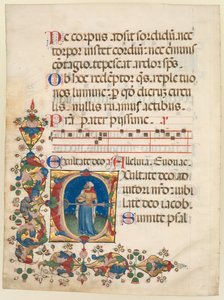 Ne corpus assit sordidum nec
torpor instet cordium nec criminis
contagio tepescat ardor sps.
Ob hoc redemptor qs reple tuo
nos lumine p qd dieru circu
lis nullis ruamus actibus.
Pta pater pijssime
Exultate deo Alleluia. Euouae
Exultate deo ad
iutori nro iub
ilate deo iacob.
Sumite psal